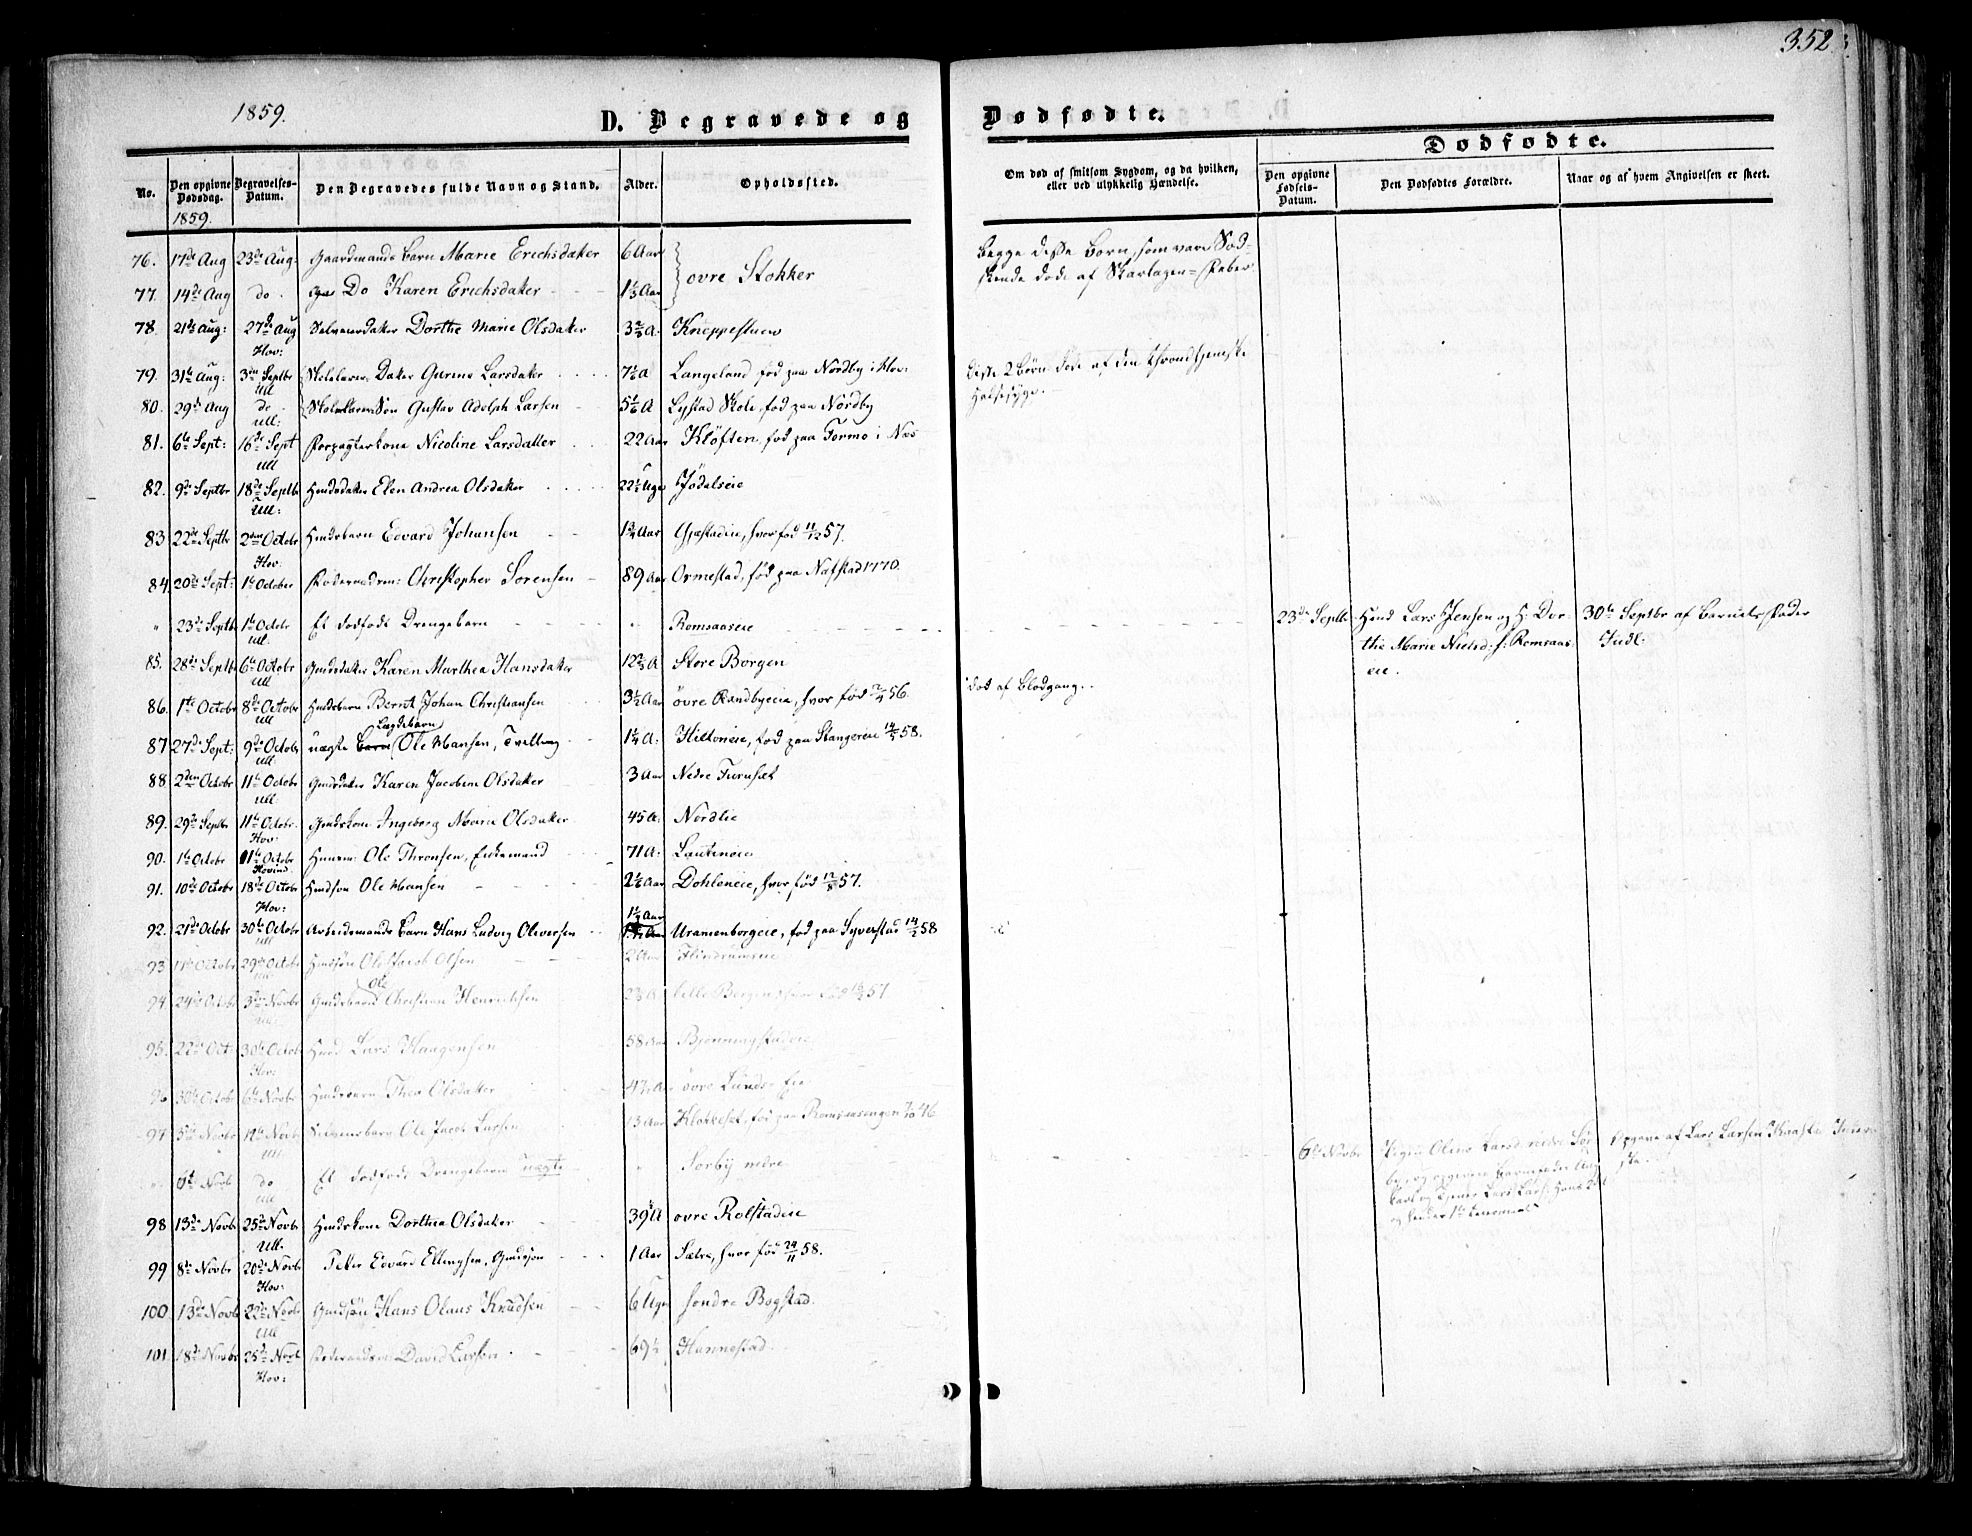 352
1859.
D. Begravede og Dødfødte.
Dødfødte.
No.
Den opgivne Dødsdag.
Begravelses-Datum.
Den Begravedes fulde Navn og Stand.
Alder.
Opholdssted.
Om død af smitsom Sygdom, og da hvilken, eller ved ulykkelig Hændelse.
Den opgivne Fødsels-Datum.
Den Dødfødtes Forældre.
Naar og af hvem Angivelsen er skeet.
1859.
76. 17de Aug 23de Aug: Gaardmands Barn Marie Erichsdatter 6 Aar
øvre Stokker
Begge disse Børn, som vare Sød-
skende døde af Skarlagen=Feber
77. 14de Aug do. Do Karen Erichsdatter 1⅓ Aar
78. 21de Aug: 27de Aug Selveierdatter Dorthe Marie Olsdatter 3⅔ A. Kneppestuen
Hov:
79. 31te Aug: 3die Septbr Skolelærer Datter Gurine Larsdatter 7½ A Langeland fød paa Nordby i Hov:
Ull
Disse 2 Børn døde af den Throndhjemske
Halssyge.
80. 29de Aug do Skolelærers Søn Gustav Adolph Larsen 5⅙ A Lystad Skole, fød paa Nordby
Ull:
81. 6te Sept: 16de Sept Forpagterkone Nicoline Larsdatter 22 Aar Kløften, fød paa Tormo i Næs
Ull
82. 9de Septbr 18de Septbr Husmdatter Elen Andrea Olsdatter 22½ Uge Jødalseie
Ull:
83 22de Septbr 2den Octobr Husmbarn Edvard Johansen 1¾ Aar Gjestadeie, hvor fød 11/12 57.
Hov:
84. 20de Sept: 1te October Føderaadsm: Christopher Sørensen 89 Aar Ormestad, fød paa Nafstad 1770.
" 23de Septb 1te Octobr Et dødfødt Drengebarn " Romsaaseie
Ull.
23de Septb Husmd Lars Jensen og H. Dor-
thie Marie Nielsd: f: Romsaas-
eie.
30te Septbr af Barnets Fader
Indl:
85. 28de Septb 6te Octobr Gmdsdatter Karen Marthea Hansdatter 12⅔ A Store Borgen
Ull
86. 1te Octobr 8de Octobr Husmbarn Bernt Johan Christiansen 3½ Aar øvre Randbyeie, hvor fød 2/4 56.
Ull
død af Blodgang.
87 27de Sept: 9de Octobr uægte Lægdsbarn Ole Hansen, Tvilling 1¼ A: Hiltoneie, fød paa Stangereie 14/5 58.
Ull.
88. 2den Octobr 11te Octobr Gmdsdatter Karen Jacobine Olsdatter 3 Aar Nedre Furuset
Ull.
89. 29de Septbr 11te Octobr. Gmdskone Ingeborg Marie Olsdatter 45 A: Nordlie
Hov:
90. 1te Octobr 11te Octobr Husm: Ole Thronsen, Enkemand 71 A: Lauteneie
Hovind.
91. 10de Octobr 18de Octobr Husmdsøn Ole Hansen 2⅙ Aar Dohleneie, hvor fød 12/8 57.
Hov:
92. 21de Octobr 30te Octobr Arbeidsmands Barn Hans Ludvig Oliversen 1½ Aar Uranienborgeie, fød paa Syverstad 14/2 58
Ull
93 Octobr 29de Octobr Husmsøn Ole Jacob Olsen 2 Aar Flindrumseie
Ull
94. 24de Octobr 3die Novbr Gmdsbarn Ole Christian Henriksen 2⅔ A lille Borgen, hvor fød 57
Ull
95. 22de Oct: 30te Octobr Husmd Lars Haagensen 58 Aar Bjønningstadeie
Hov:
96 30te Octobr 6te Novbr Husmdsbarn Thea Olsdatter 4½ A øvre Lunds Eie
97. 5te Novbr 12te Novbr Selveiersbarn Ole Jacob Larsen 13 Aar Klokkeset, fød paa Romsaasengen 9/10 46
Ull.
" 6te Novbr do Et dødfødt Drengebarn uægte " Norby nedre
Ull
6te Novbr Pigen Oline Larsd nedre
og opgivne Barnefader Ung-
karl og Tjener Lars Lars:
og hendes 1te Leiermaal
Opgivet af Lars Larsen
98 13de Novbr 25de Novbr Husmdskone Dorthea Olsdatter 39 A øvre Rolstadeie
Ull.
99 8de Novbr 20de Novbr Peter Edvard Ellingsen, Gmdssøn 1 Aar Sætre, hvor fød 24/11 58.
Hov:
100 13de Novbr 22de Novbr Gmdssøn Hans Olaus Knudsen 6 Uger søndre Bogstad.
Ull
101 18de Novbr 25de Novb Føderaadsm David Larsen 69½ Hannestad.
Hov: